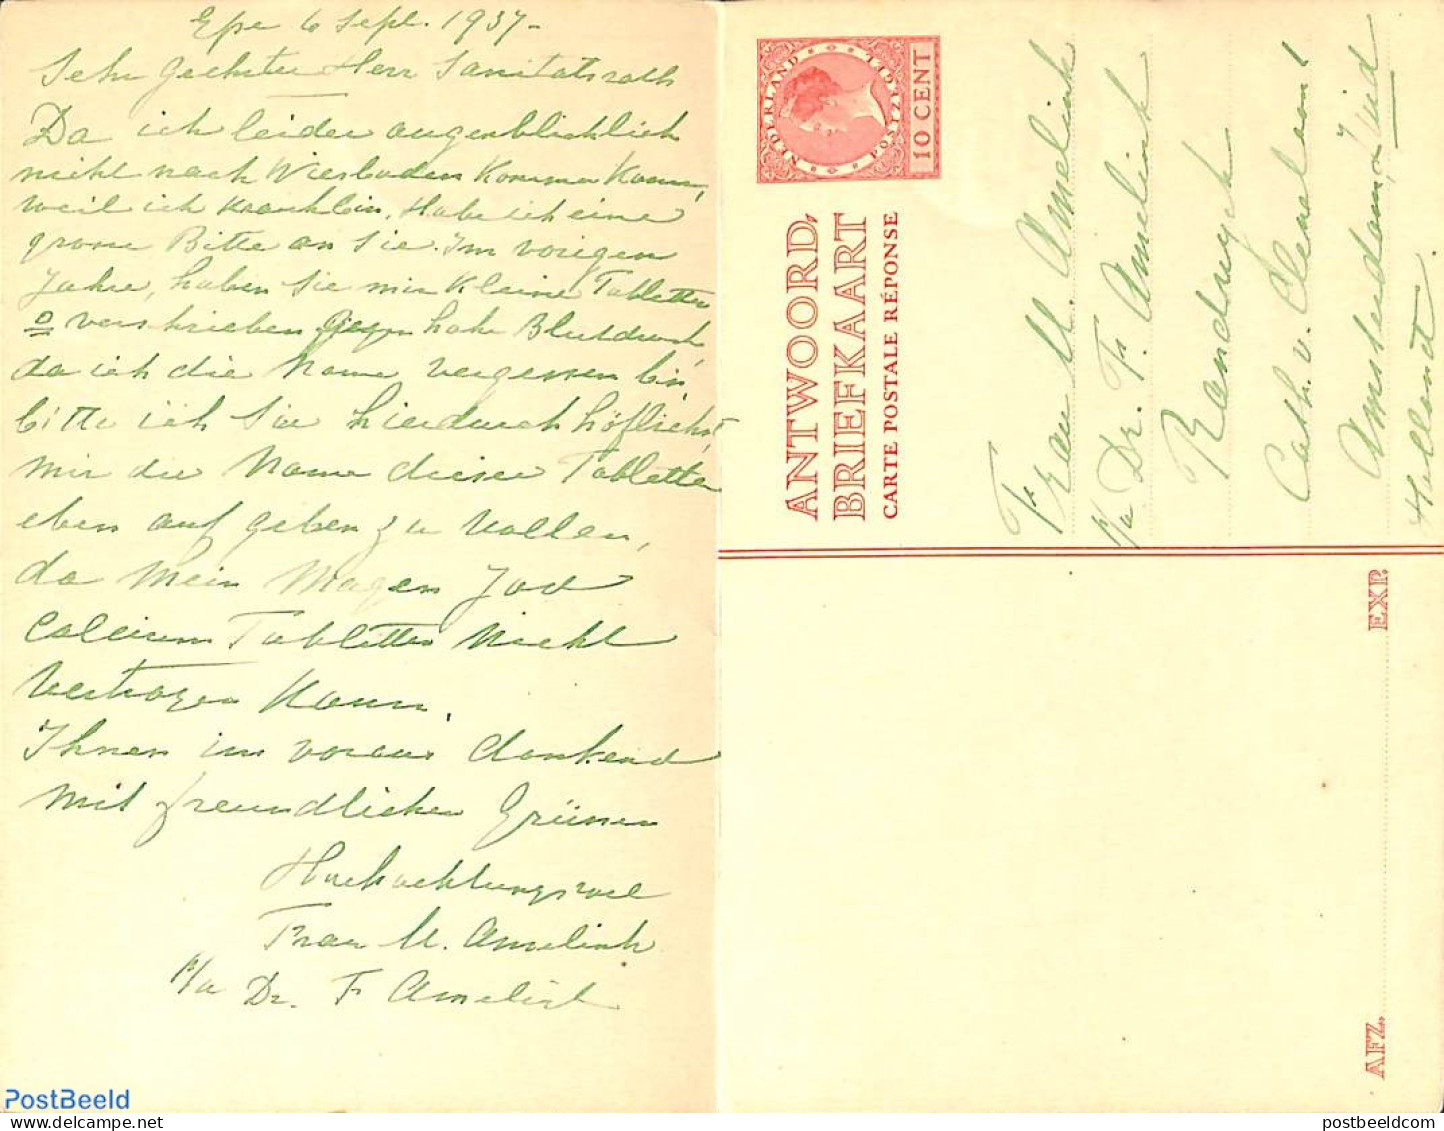 Epe 6 Sept. 1937-
Sehr geehrter Herr Sanitätsrath
Da ich leider augenblicklich
nicht nach Wiesbaden Kommen Kann,
weil ich Krank bin, Habe ich eine
grosse Bitte an Sie. Im vorigen
Jahre, haben Sie mir Kleine Tabletten
o verschrieben gegen hohe Blutdruck
da ich die Name vergessen bin,
bitte ich Sie hierdurch höflichst
mir die Name dieser Tabletten
eben auf geben zu wollen,
da mein Magen Jod
Calcium Tabletten nicht
vertragen Kann.
Ihnen im voraus dankend
mit freundlichen Grüssen
Hochachtungsvoll
Frau M. Amelink
p/a Dr. F. Amelink
NEDERLAND
POSTZEGEL
10 CENT
ANTWOORD-
BRIEFKAART
CARTE POSTALE RÉPONSE
Frau M. Amelink
p/a Dr. F. Amelink
Cath. v.
Amsterdam, Zuid
Holland.
EXP.
AFZ.
PostBeeld
postbeeldcom